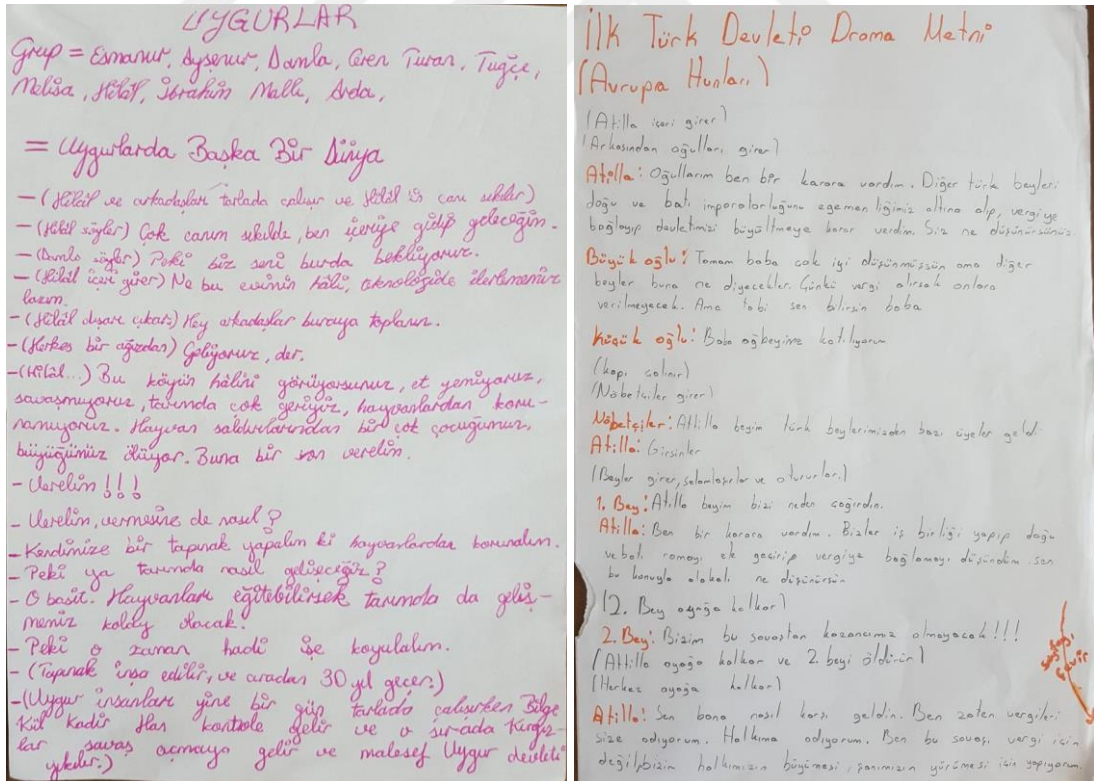 UYGURLAR
Grup = Esmanur, Ayşenur, Damla, Ceren Turan, Tuğçe,
Melisa, Hilâl, İbrahim Mallı, Arda,
= Uygurlarda Başka Bir Dünya
- (Hilâl ve arkadaşları tarlada çalışır ve Hilâl'in canı sıkılır)
- (Hilâl söyler) Çok canım sıkıldı, ben içeriye gidip geleceğim.
- (Damla söyler) Peki biz seni burda bekliyoruz.
- (Hilâl içeri girer) Ne bu evimin hâli, teknolojide ilerlememiz
lazım.
- (Hilâl dışarı çıkar.) Hey arkadaşlar buraya toplanın.
- (Herkes bir ağızdan) Geliyoruz, der.
- (Hilâl...) Bu köyün hâlini görüyorsunuz, et yemiyoruz,
savaşmıyoruz, tarımda çok geriyiz, hayvanlardan koru-
namıyoruz. Hayvan saldırılarından bir çok çocuğumuz,
büyüğümüz ölüyor. Buna bir son verelim.
- Verelim!!!
- Verelim, vermesine de nasıl?
- Kendimize bir tapınak yapalım ki hayvanlardan korunalım.
- Peki ya tarımda nasıl gelişeceğiz?
- O basit. Hayvanları eğitebilirsek tarımda da geliş-
memiz kolay olacak!
- Peki o zaman hadi işe koyulalım.
- (Tapınak inşa edilir, ve aradan 30 yıl geçer.)
- (Uygur insanları yine bir gün tarlada çalışırken Bilge
Kül Kadir Han kontrole gelir ve o sırada Kırgız-
lar savaş açmaya gelir ve malesef Uygur devleti
yıkılır.)
İlk Türk Devleti Drama Metni
(Avrupa Hunları)
(Atilla içeri girer)
(Arkasından oğulları girer)
Atilla: Oğullarım ben bir karara vardım. Diğer türk beyleri
doğu ve batı imparatorluğunu egemenliğimiz altına alıp, vergiye
bağlayıp devletimizi büyültmeye karar verdim. Siz ne düşünürsünüz.
Büyük oğlu: Tamam baba çok iyi düşünmüşsün ama diğer
beyler buna ne diyecekler. Çünkü vergi alırsak onlara
verilmeyecek. Ama tabi sen bilirsin baba
Küçük oğlu: Baba ağbeyime katılıyorum
(kapı çalınır)
(Nöbetçiler girer)
Nöbetçiler: Attilla beyim türk beylerimizden bazı üyeler geldi.
Atilla: Girsinler
(Beyler girer, selamlaşırlar ve otururlar.)
1. Bey: Atilla beyim bizi neden çağırdın.
Atilla: Ben bir karara vardım. Bizler iş birliği yapıp doğu
ve batı romayı ele geçirip vergiye bağlamayı düşündüm. sen
bu konuyla alakalı ne düşünürsün
(2. Bey ayağa kalkar)
2. Bey: Bizim bu savaştan kazancımız olmayacak!!!
(Attilla ayağa kalkar ve 2. beyi öldürür)
(Herkez ayağa kalkar)
Atilla: Sen bana nasıl karşı geldin. Ben zaten vergileri
size adıyorum. Halkıma adıyorum. Ben bu savaşı vergi için
değil, bizim halkımızın büyümesi, şanımızın yürümesi için yapıyorum.
Sayfayı
çevir